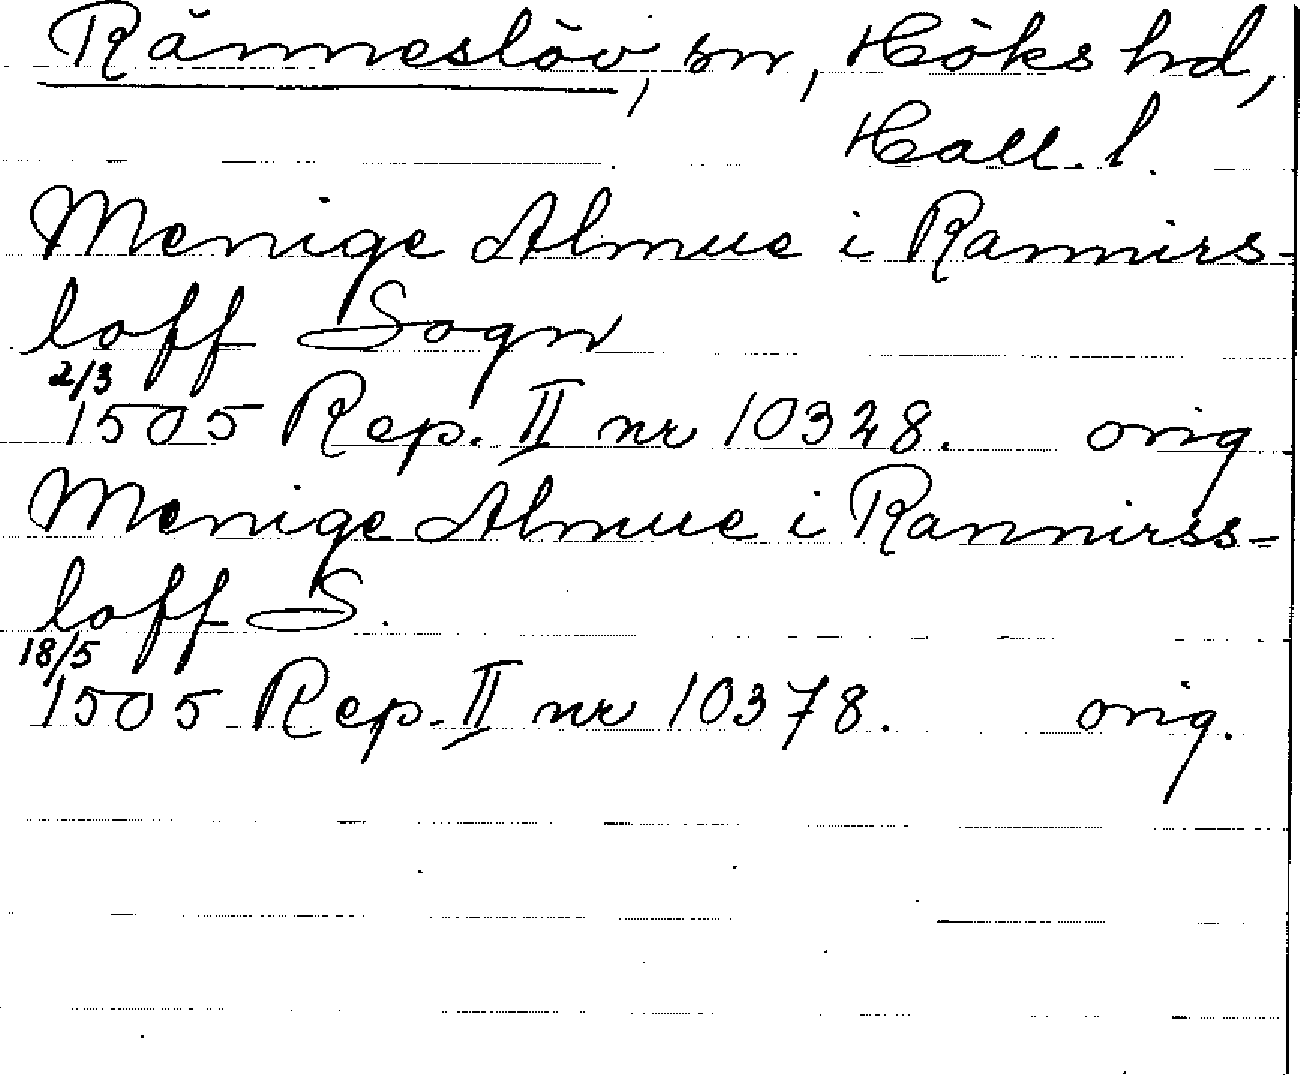 Ränneslöv, sn, Höks hd,
Hall. l.
Menige Almue i Rannirs-
loff Sogn
2/3
1505 Rep. II nr 10328. orig
Menige Almue i Rannirss-
loff S.
18/5
1505 Rep. II nr 10378. orig.